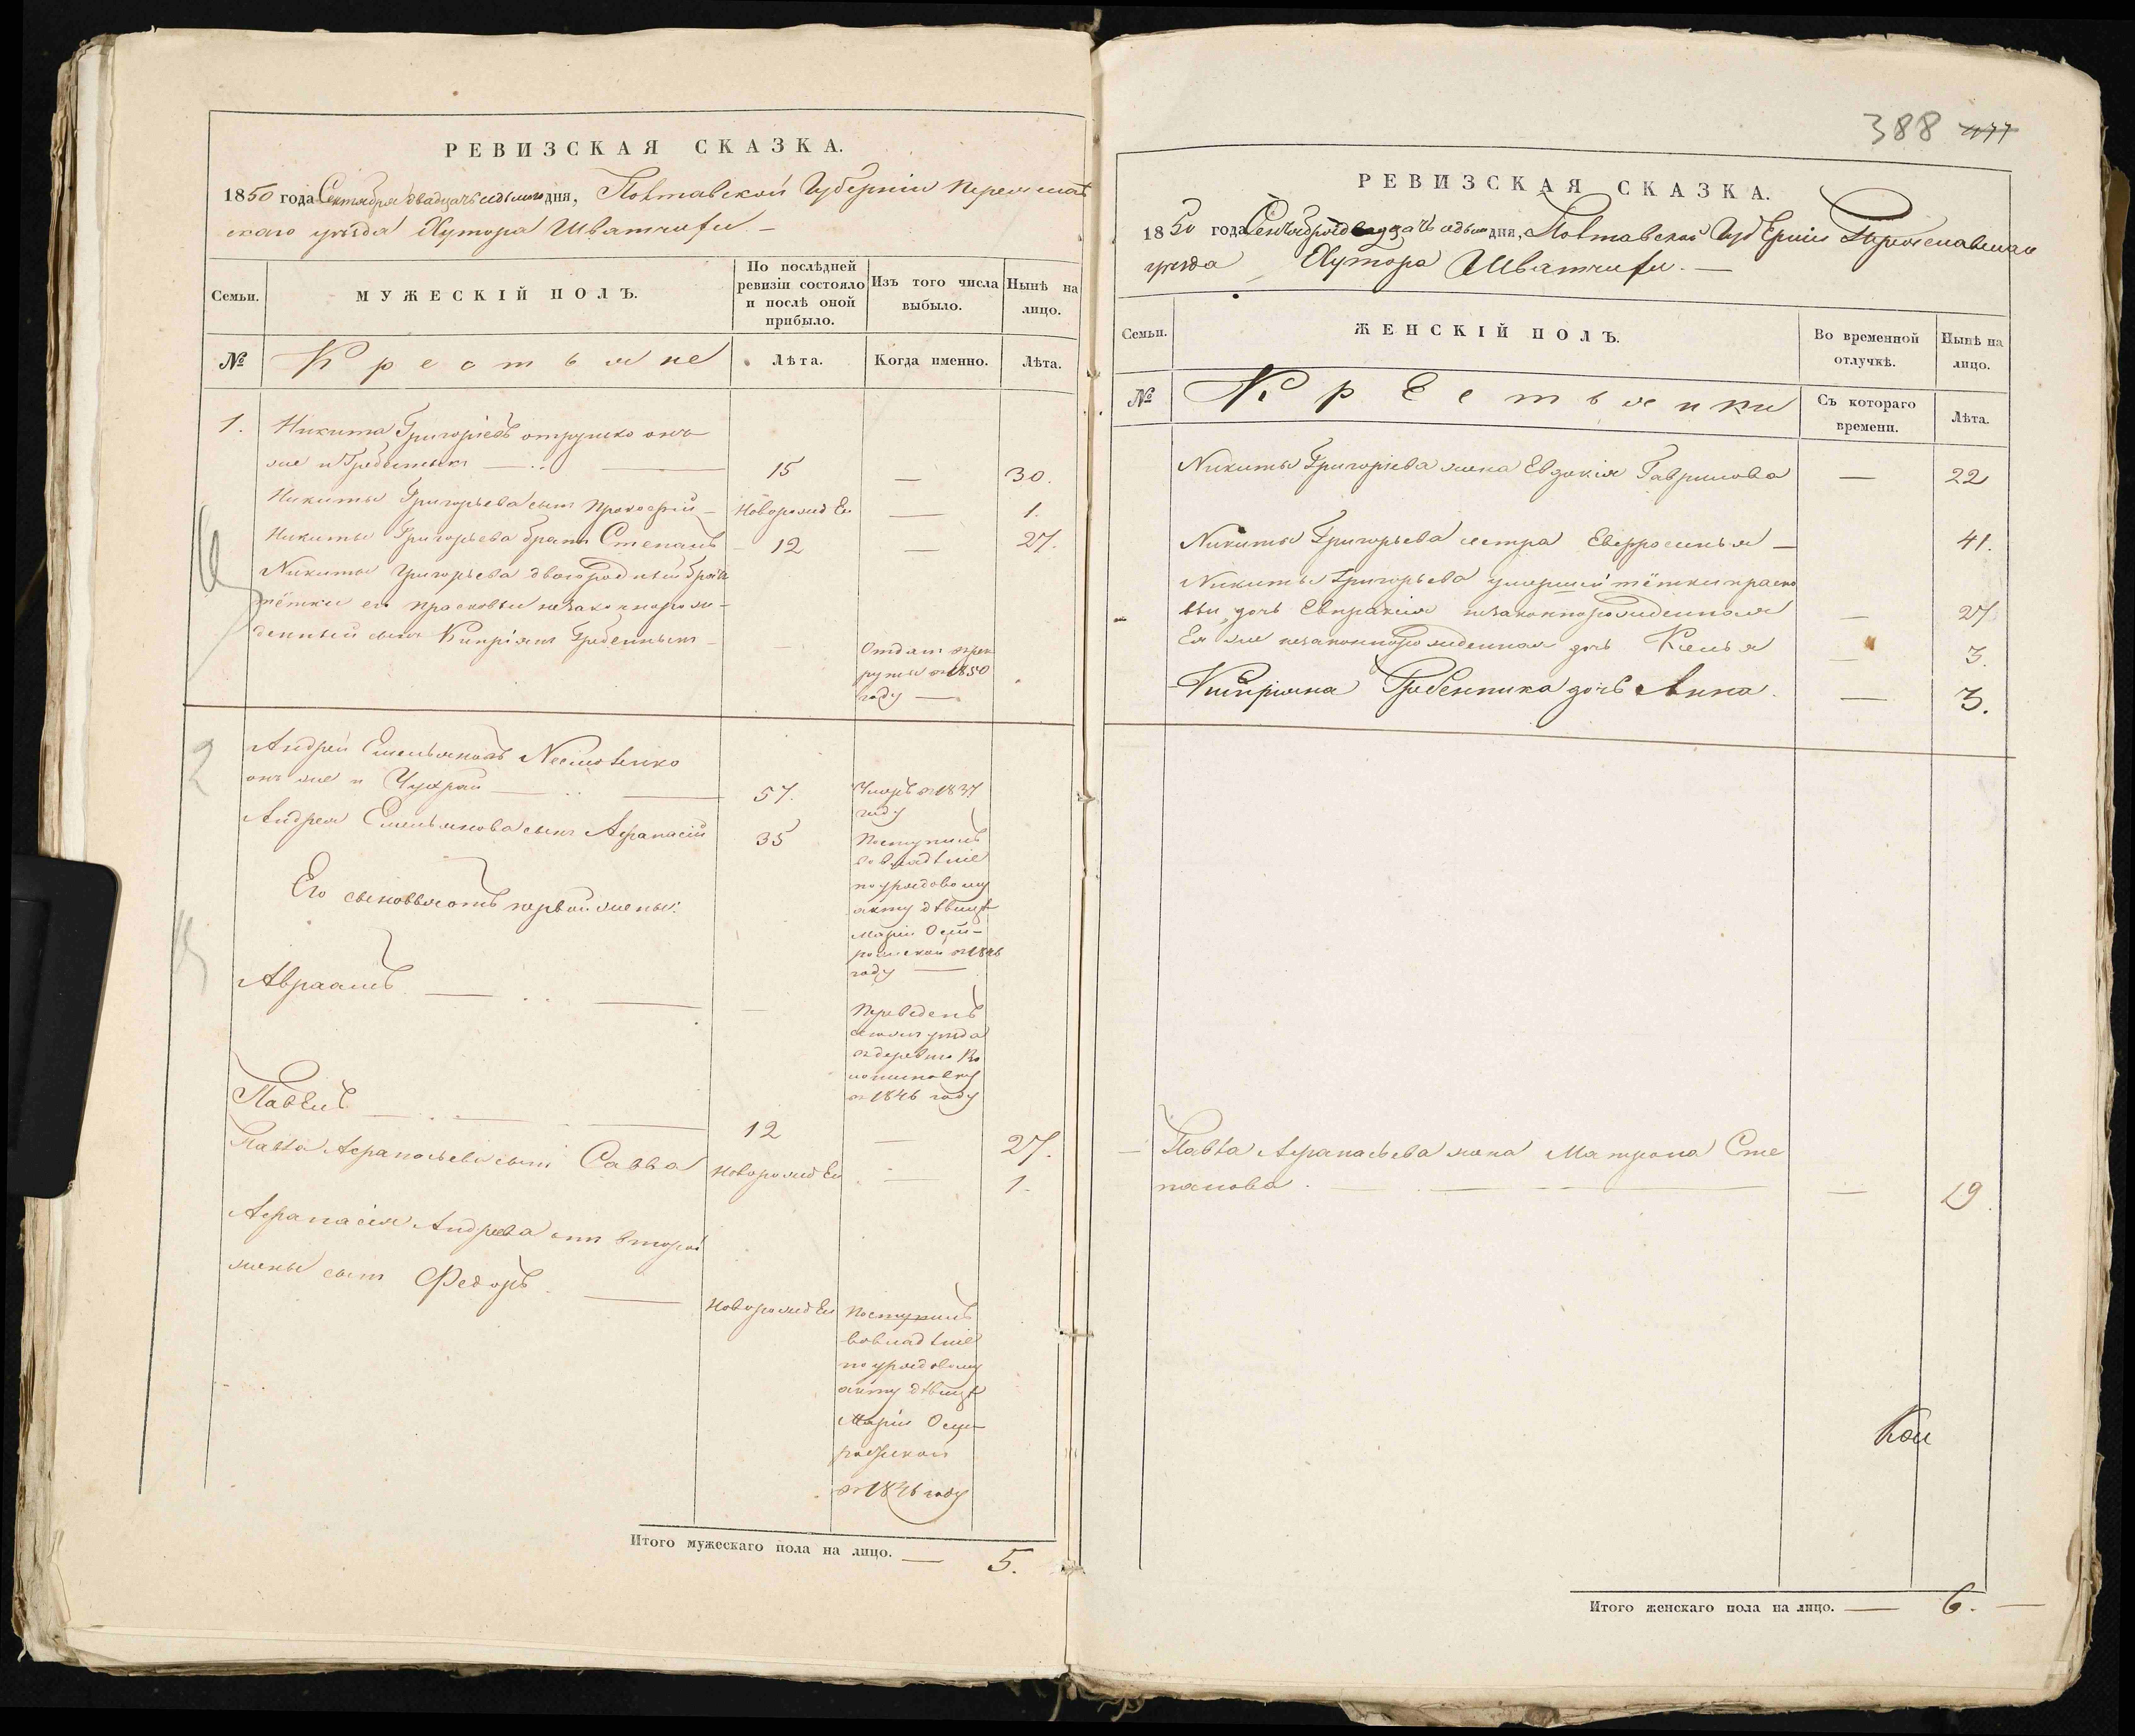 РЕВИЗСКАЯ СКАЗКА.
1850 года Сентября двадцать седьмого дня, Полтавской Губерніи Переяслав
скаго уѣзда Хутора
Семьи.
МУЖЕСКІЙ ПОЛЪ.
По послѣдней ревизіи состояло и послѣ оной прибыло.
Изъ того числа выбыло.
Нынѣ на лицо.
№
Крестьяне
Лѣта.
Когда именно.
Лѣта.
1. Никита Григорьевъ онъ
же и Гребенникъ — 15 — 30.
Никиты Григорьева сынъ Прокофій — Новорожден — 1.
Никиты Григорьева братъ Степанъ — 12 — 27.
Никиты Григорьева двоюродный братъ
тётки его Прасковьи незаконнорож-
денный сынъ Кипріянъ Гребенникъ —
Отданъ в рек
руты в 1850
году —
2 Андрей Емельяновъ
онъ же и Чухрай — 57.
Умеръ в 1837
году
Андрея Емельянова сынъ Афанасій 35
Поступилъ
во владѣніе
по урядовому
акту дѣвицѣ
Маріи
в 1846
году —
Его сыновья отъ первой жены:
Авраамъ — —
Переведенъ
уѣзда
в деревню
в 1846 году
Павелъ — 12 — 27.
Павла Афанасьева сынъ Савва Новорожден — 1.
Афанасія Андреева отъ второй
жены сынъ Федоръ. — Новорожден
Поступилъ
во владѣніе
по урядовому
акту дѣвицѣ
Маріи
в 1846 году
Итого мужескаго пола на лицо. — 5.
388 477
РЕВИЗСКАЯ СКАЗКА.
1850 года Сентября двадцать седьмого дня, Полтавской Губерніи Переяславскаго
уѣзда Хутора
Семьи.
ЖЕНСКІЙ ПОЛЪ.
Во временной отлучкѣ.
Нынѣ на лицо.
№
Крестьянки
Съ котораго времени.
Лѣта.
Никиты Григорьева жена Евдокія Гаврилова — 22
Никиты Григорьева сестра Евфросинья — 41.
Никиты Григорьева умершей тётки Праско
вьи дочь Евпраксія незаконнорожденная — 27
Ея же незаконнорожденная дочь — 3.
Кипріяна Гребенника дочь Анна. — 3.
Павла Афанасьева жена Матрона Сте
панова. — 19.
Итого женскаго пола на лицо. — 6. —